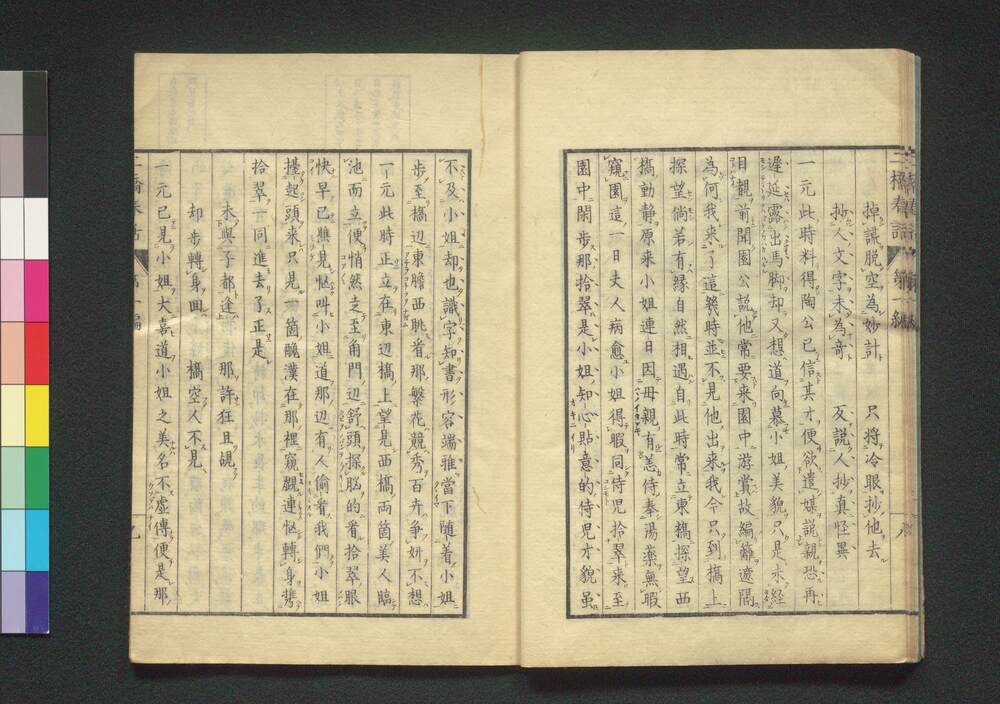 二橋春話 第一編
掉謊脱空為妙計 只將冷眼抄他去
抄人文字未為奇 及説人抄真怪異
一元此時料得陶公已信其才便欲遣媒説親恐再
遲延露出馬脚却又想道向慕小姐美貌只是未經
目覩前聞園公説他常要来園中游賞故編籬遮隔
為何我来了這幾時並不見他出来我今只到橋上
探望倘若有縁自然相遇自此時常立東橋探望西
橋動静原来小姐連日因母親有恙侍奉湯藥無暇
窺園這一日夫人病愈小姐得暇同侍児拾翠来至
園中閑歩那拾翠是小姐知心貼意的侍児才貌虽
不及小姐却也識字知書形容端雅當下随着小姐
歩至橋辺東瞻西眺看那繁花競秀百卉争妍不想
一元此時正立在東辺橋上望見西橋両箇美人臨
池而立便悄然走至角門辺舒頭探脳的看拾翠眼
快早已瞧見忙叫小姐道那辺有人偷看我們小姐
擡起頭来只見一箇醜漢在那裡窺覰連忙轉身携
拾翠一同進去了正是
未與子都逢 那許狂且覘
却歩轉身回 橋空人不見
一元已見小姐大喜道小姐之美名不虚傳便是那